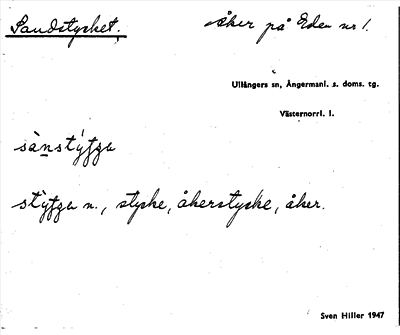 Sandstycket.
åker på Eden nr 1.
Ullångers sn, Ångermanl. s. doms. tg.
Västernorrl. l.
stycke, åkerstycke, åker.
Sven Hiller 1947